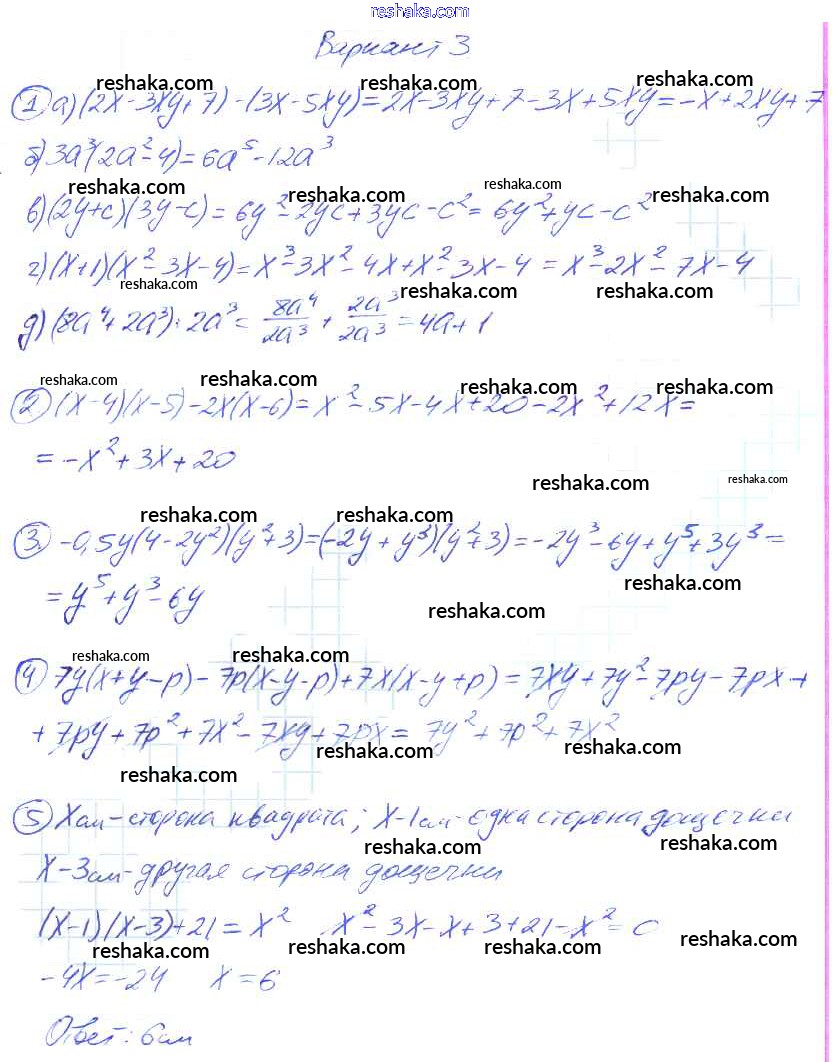 reshaka.com
Вариант 3
reshaka.com reshaka.com reshaka.com
① а) (2x - 3xy + 7) - (3x - 5xy) = 2x - 3xy + 7 - 3x + 5xy = -x + 2xy + 7
б) 3a³(2a² - 4) = 6a⁵ - 12a³
reshaka.com reshaka.com reshaka.com reshaka.com
в) (2y + c)(3y - c) = 6y² - 2yc + 3yc - c² = 6y² + yc - c²
г) (x + 1)(x² - 3x - 4) = x³ - 3x² - 4x + x² - 3x - 4 = x³ - 2x² - 7x - 4
reshaka.com reshaka.com reshaka.com
д) (8a⁴ + 2a³) : 2a³ = 8a⁴/2a³ + 2a³/2a³ = 4a + 1
reshaka.com reshaka.com reshaka.com reshaka.com
② (x - 4)(x - 5) - 2x(x - 6) = x² - 5x - 4x + 20 - 2x² + 12x =
= -x² + 3x + 20
reshaka.com reshaka.com
reshaka.com reshaka.com
③. -0,5y(4 - 2y²)(y² + 3) = (-2y + y³)(y² + 3) = -2y³ - 6y + y⁵ + 3y³ =
reshaka.com
= y⁵ + y³ - 6y
reshaka.com
reshaka.com reshaka.com
④ 7y(x + y - p) - 7p(x - y - p) + 7x(x - y + p) = 7xy + 7y² - 7py - 7px +
+ 7py + 7p² + 7x² - 7xy + 7px = 7y² + 7p² + 7x²
reshaka.com reshaka.com
reshaka.com
⑤ x см - сторона квадрата; x - 1 см - одна сторона дощечки
reshaka.com reshaka.com
x - 3 см - другая сторона дощечки
(x - 1)(x - 3) + 21 = x² x² - 3x - x + 3 + 21 - x² = 0
reshaka.com reshaka.com reshaka.com reshaka.com
-4x = -24 x = 6
Ответ: 6 см